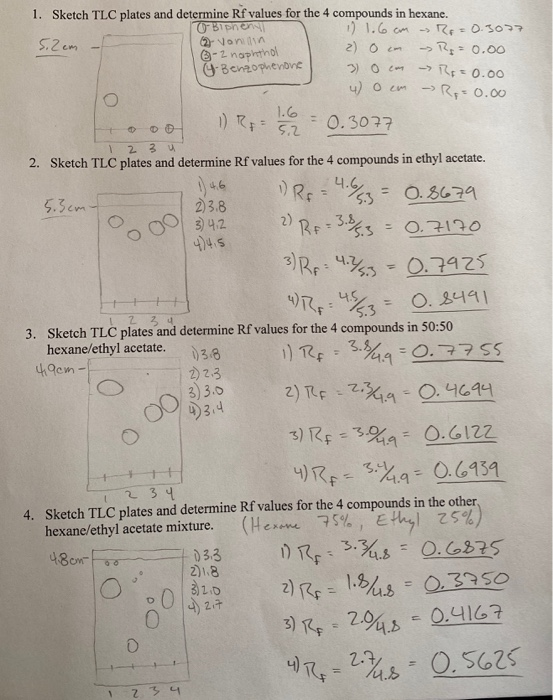 1. Sketch TLC plates and determine Rf values for the 4 compounds in hexane.
5.2 cm
1-Biphenyl
2-Vanillin
3-2 naphthol
4-Benzophenone
1) 1.6 cm → Rf = 0.3077
2) 0 cm → Rf = 0.00
3) 0 cm → Rf = 0.00
4) 0 cm → Rf = 0.00
1) Rf = 1.6/5.2 = 0.3077
1 2 3 4
2. Sketch TLC plates and determine Rf values for the 4 compounds in ethyl acetate.
5.3cm
1) 4.6
2) 3.8
3) 4.2
4) 4.5
1) Rf = 4.6/5.3 = 0.8679
2) Rf = 3.8/5.3 = 0.7170
3) Rf = 4.2/5.3 = 0.7925
4) Rf = 4.5/5.3 = 0.8491
1 2 3 4
3. Sketch TLC plates and determine Rf values for the 4 compounds in 50:50
hexane/ethyl acetate.
4.9cm
1) 3.8
2) 2.3
3) 3.0
4) 3.4
1) Rf = 3.8/4.9 = 0.7755
2) Rf = 2.3/4.9 = 0.4694
3) Rf = 3.0/4.9 = 0.6122
4) Rf = 3.4/4.9 = 0.6939
1 2 3 4
4. Sketch TLC plates and determine Rf values for the 4 compounds in the other
hexane/ethyl acetate mixture. (Hexane 75%, Ethyl 25%)
4.8cm
1) 3.3
2) 1.8
3) 2.0
4) 2.7
1) Rf = 3.3/4.8 = 0.6875
2) Rf = 1.8/4.8 = 0.3750
3) Rf = 2.0/4.8 = 0.4167
4) Rf = 2.7/4.8 = 0.5625
1 2 3 4